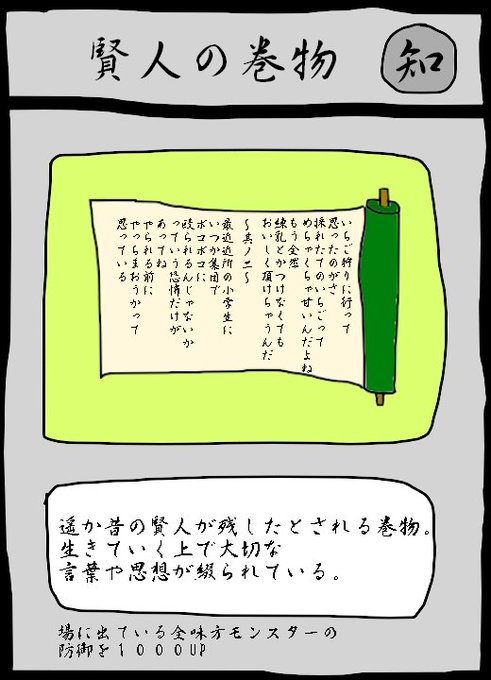 賢人の巻物
知
いちご狩りに行って
思ったのがさ
採れたてのいちごって
めちゃくちゃ甘いんだよね
もう全然
練乳とかつけなくても
おいしく頂けちゃうんだ
〜其ノ二〜
最近近所の小学生に
いつか集団で
ボコボコに
殴られるんじゃないか
っていう恐怖だけが
あってね
やられる前に
やっちまおうかって
思っている
遥か昔の賢人が残したとされる巻物。
生きていく上で大切な
言葉や思想が綴られている。
場に出ている全味方モンスターの
防御を１０００UP